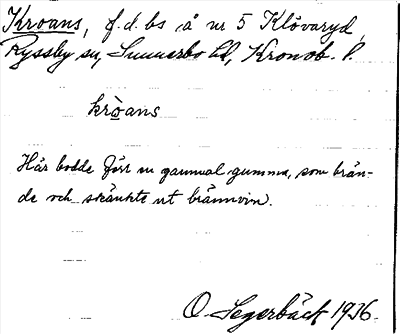 Kroans, f.d. bs å nr 5 Klövaryd,
Ryssby sn, Sunnerbo hd, Kronob. l.
kròans
Här bodde förr en gammal gumma, som brän-
de och skänkte ut brännvin.
O. Segerbäck 1936.